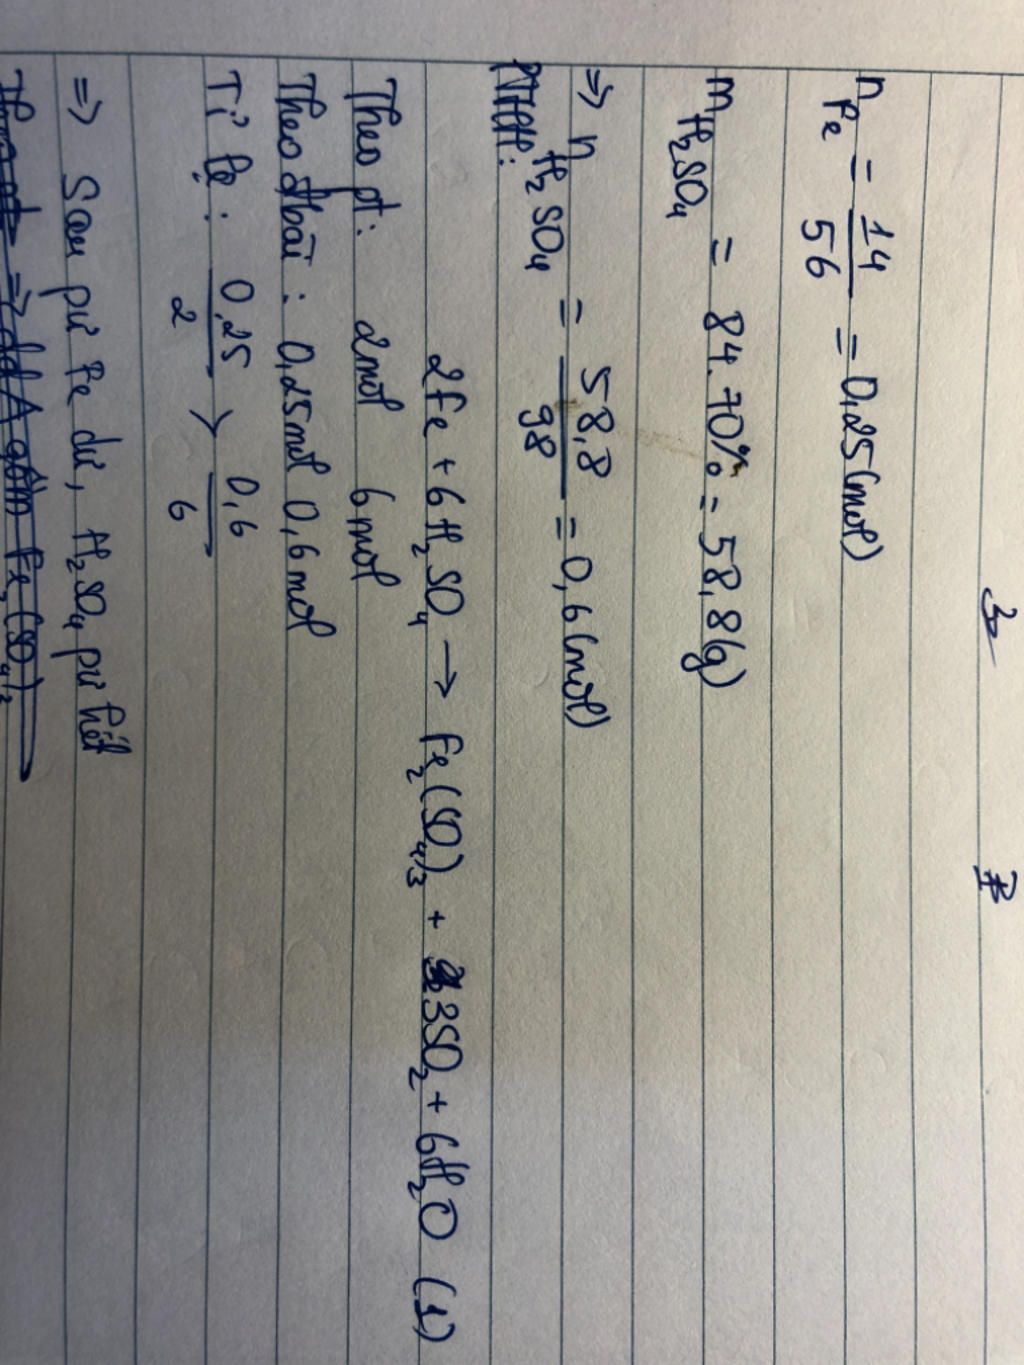 n Fe = 14/56 = 0,25 (mol)
m H₂SO₄ = 84.70% = 58,8 (g)
=> n H₂SO₄ = 58,8/98 = 0,6 (mol)
PTHH:
2Fe + 6H₂SO₄ → Fe₂(SO₄)₃ + 3SO₂ + 6H₂O (1)
Theo pt: 2mol 6mol
Theo đbài: 0,25mol 0,6mol
Tỉ lệ: 0,25/2 > 0,6/6
=> Sau pứ Fe dư, H₂SO₄ pứ hết
=> dd A gồm Fe₂(SO₄)₃